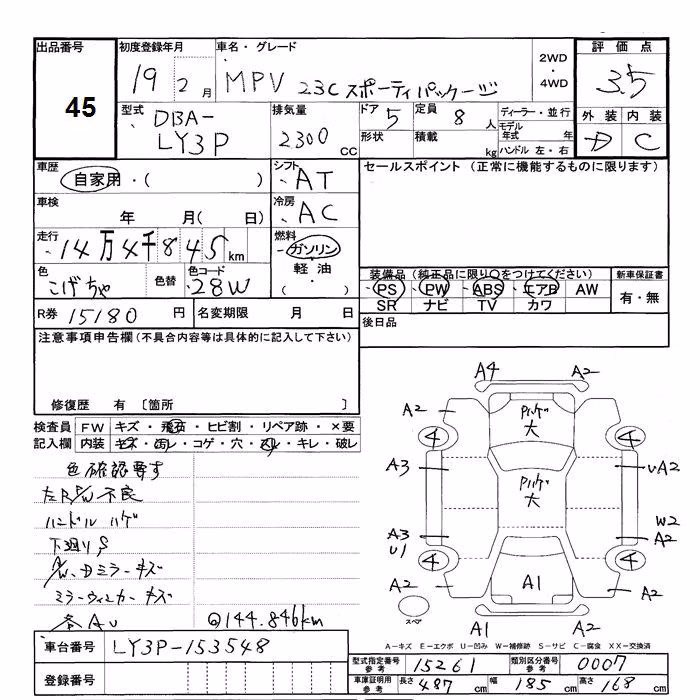 出品番号
45
初度登録年月
19 2 月
車名・グレード
MPV 23C スポーティパッケージ
2WD
・
4WD
評価点
3.5
型式
DBA-
LY3P
排気量
2300 CC
ドア 5
定員 8 人
形状
積載 kg
ディーラー・並行
モデル
年式 年
ハンドル 左・右
外装 内装
D C
車歴
自家用・( )
シフト
AT
セールスポイント (正常に機能するものに限ります)
車検
年 月( 日)
冷房
AC
走行
14万4千845km
燃料
ガソリン
・
軽油
( )
色
こげちゃ
色替
色コード
28W
装備品 (純正品に限り○をつけてください)
PS PW ABS エアB AW
SR ナビ TV カワ
新車保証書
有・無
R券 15180 円
名変期限 月 日
後日品
注意事項申告欄(不具合内容等は具体的に記入して下さい)
修復歴 有 〔箇所 〕
検査員
記入欄
FW キズ・飛石・ヒビ割・リペア跡・×要
内装 キズ・汚レ・コゲ・穴・スレ・キレ・破レ
色確認要す
左R P/W 不良
ハンドル ハゲ
下廻りS
ドミラーキズ
ミラーウィンカーキズ
各AU
@144.846km
A4 A2
A2 A2
Pハゲ
大
4 4
A3 UA2
Pハゲ
大
W2
A3 A2
U1
4 4
A2 A1 A2
スペア
A1 A2
A－キズ E－エクボ U－凹み W－補修跡 S－サビ C－腐食 XX－交換済
車台番号 LY3P-153548
登録番号
型式指定番号
参考
15261
類別区分番号
参考
0007
車庫証明用
参考
長さ 487 cm 幅 185 cm 高さ 168 cm